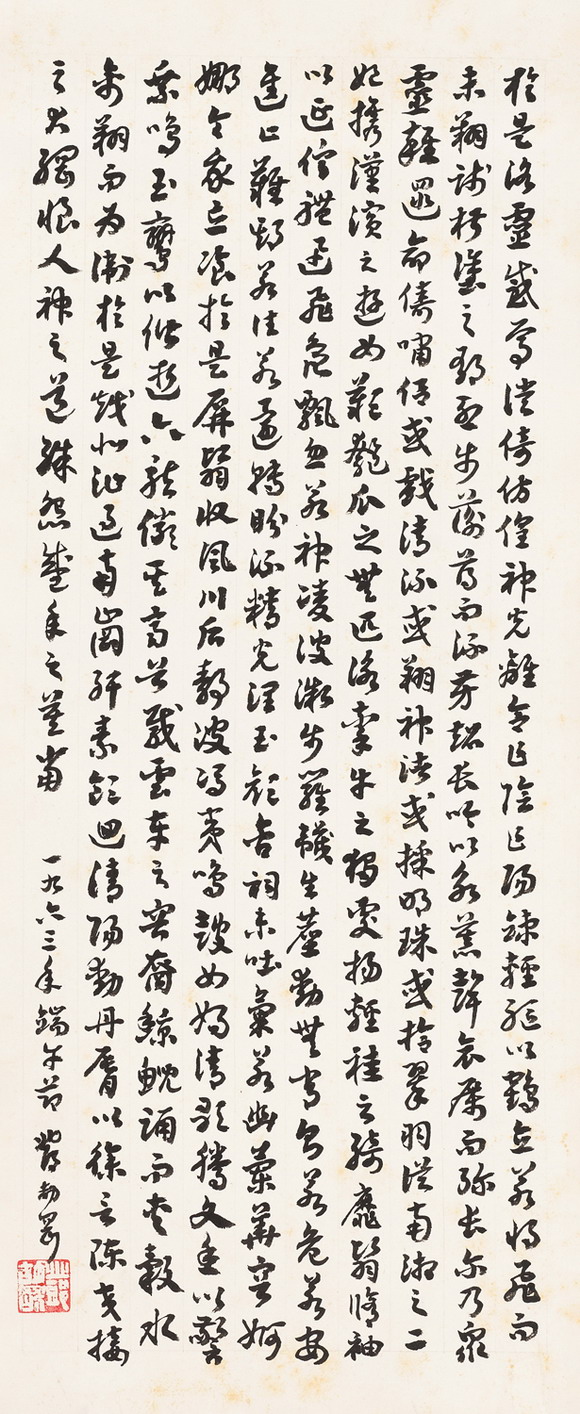 於是洛靈感焉徙倚仿偟神光離合乍陰乍陽竦輕軀以鶴立若將飛而
未翔踐椒塗之郁烈步蘅薄而流芳超長吟以永慕聲哀厲而彌長爾乃眾
靈雜遝命儔嘯侶或戲清流或翔神渚或採明珠或拾翠羽從南湘之二
妃攜漢濱之遊女歎匏瓜之無匹詠牽牛之獨處揚輕袿之綺靡翳脩袖
以延佇體迅飛鳧飄忽若神凌波微步羅襪生塵動無常則若危若安
進止難期若往若還轉盼流精光潤玉顏含詞未吐氣若幽蘭華容婀
娜令我忘飡於是屏翳收風川后靜波馮夷鳴鼓女媧清歌騰文魚以警
乘鳴玉鸞以偕逝六龍儼其齊首載雲車之容裔鯨鯢踊而夾轂水
禽翔而為衛於是越北沚過南岡紆素領迴清陽動丹脣以徐言陳交接
之大綱恨人神之道殊怨盛年之莫當 一九六三年端午節